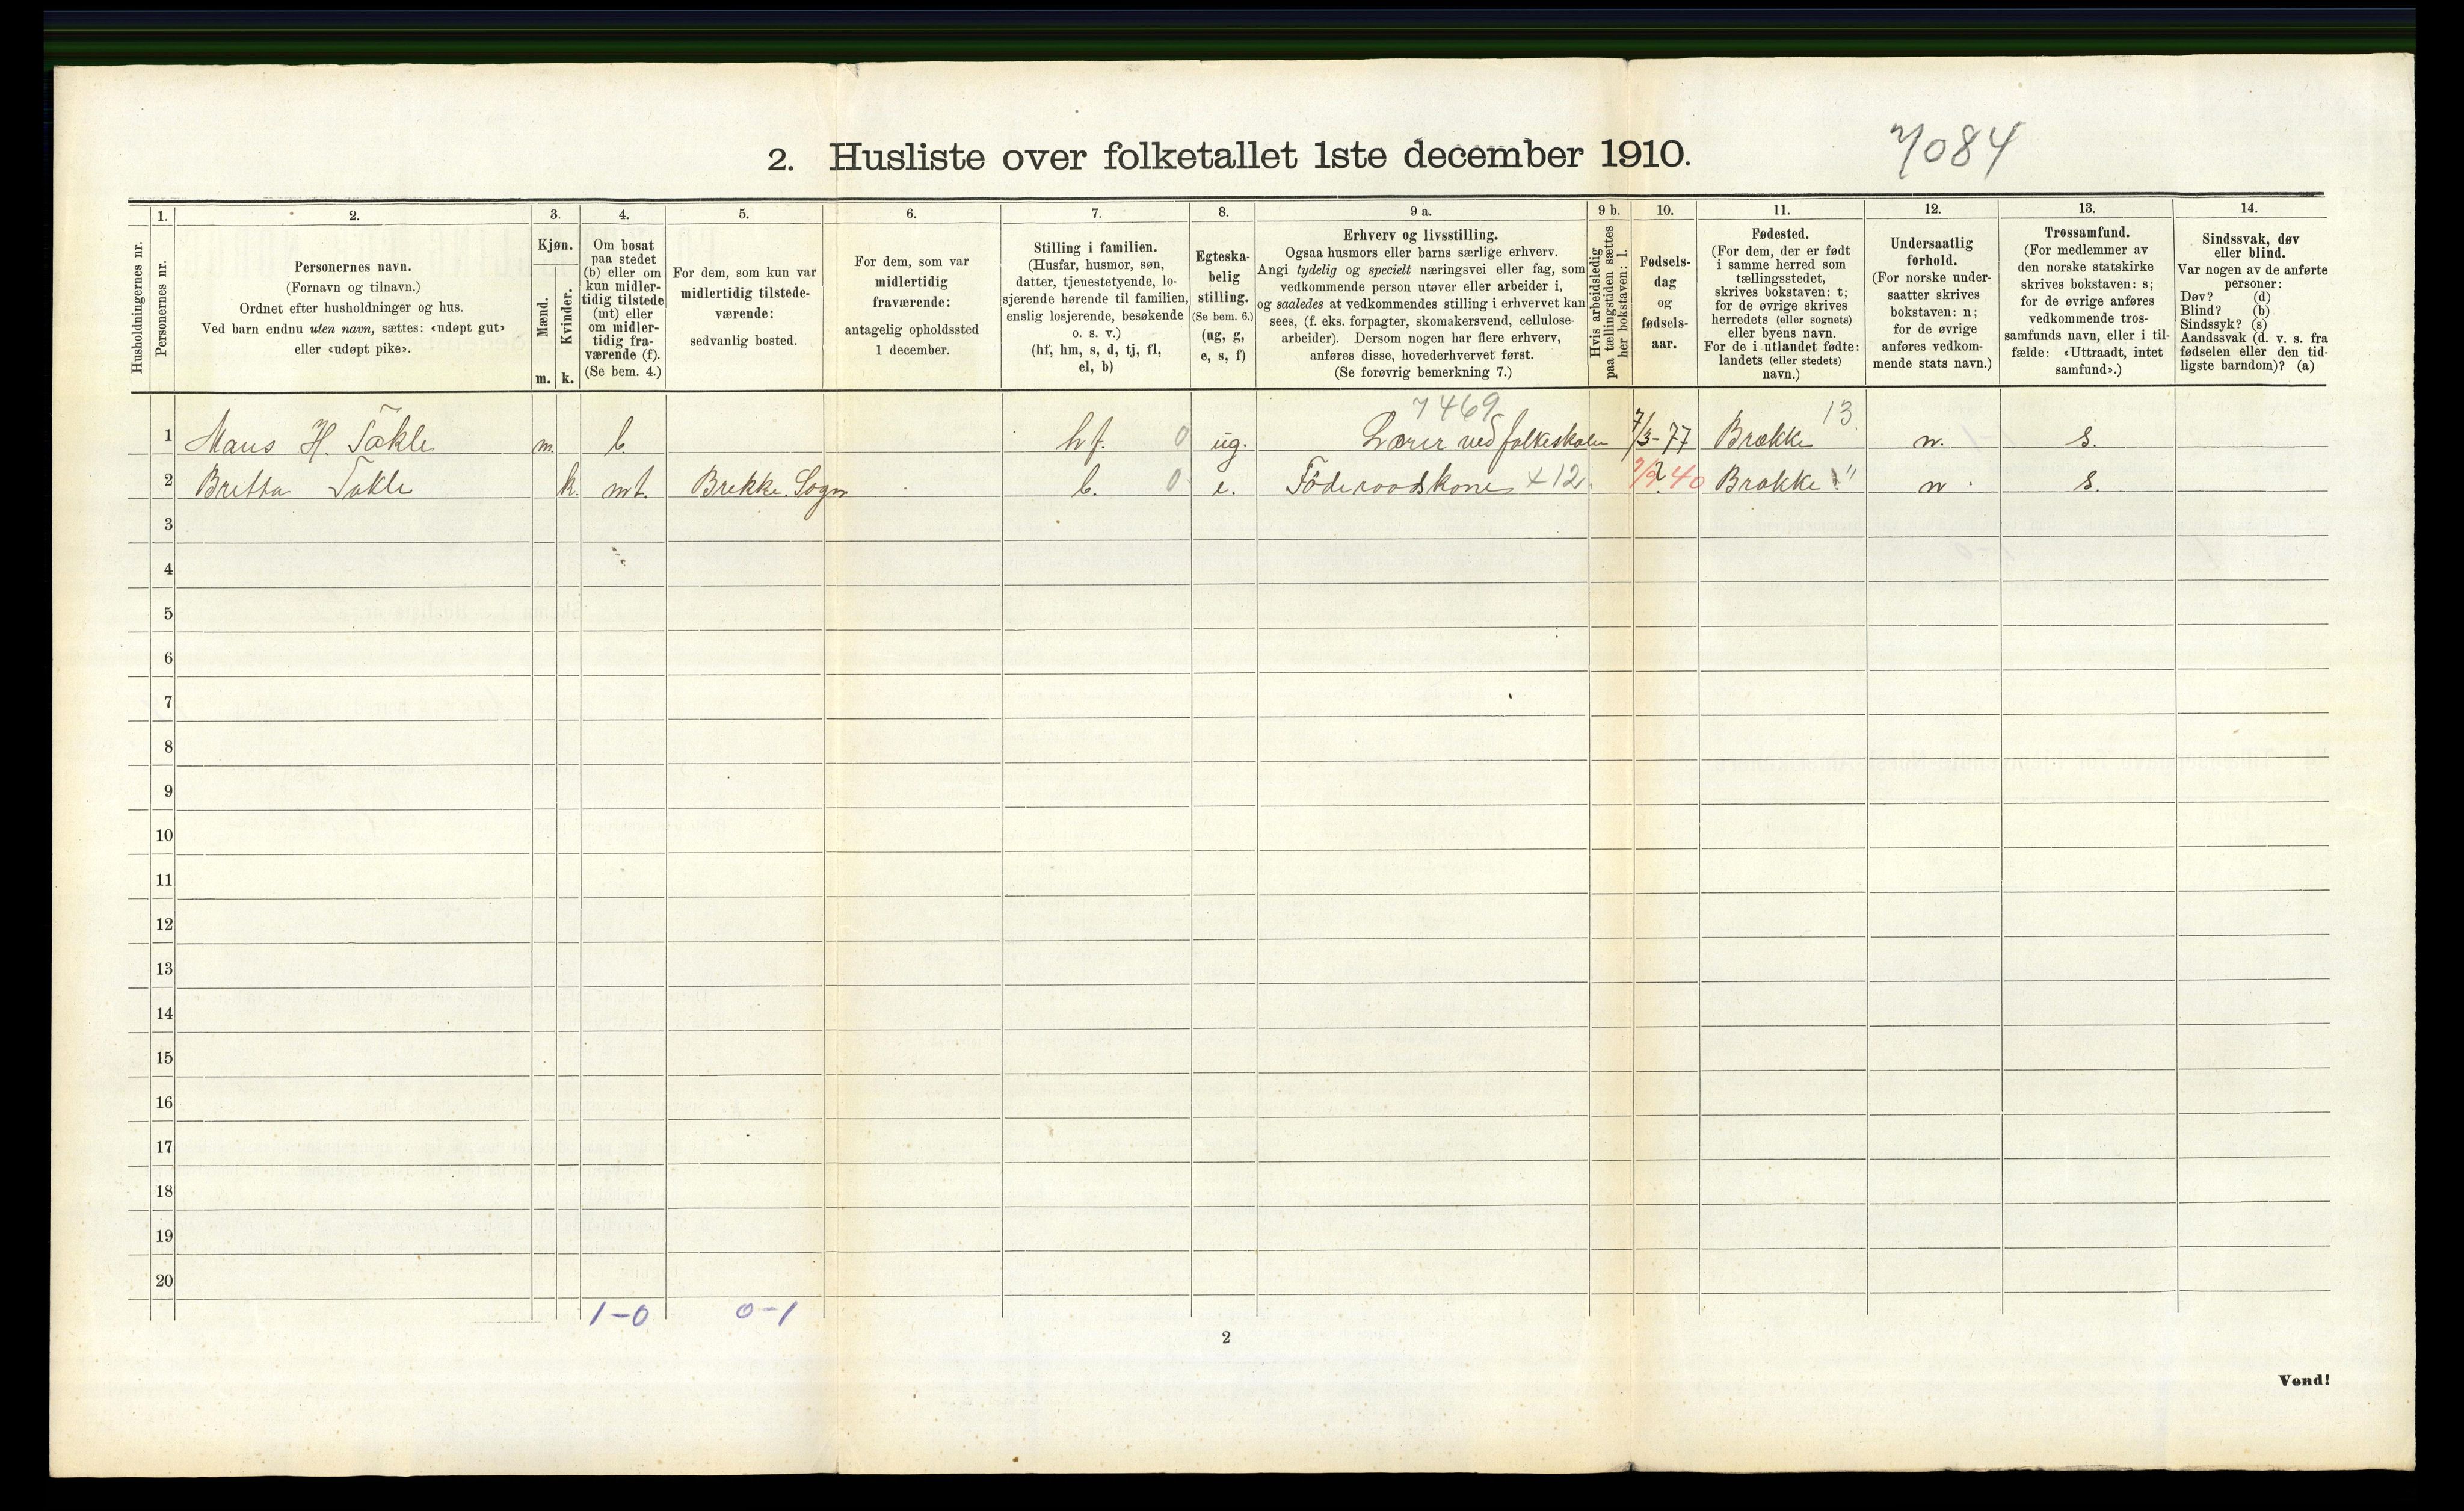 2. Husliste over folketallet 1ste december 1910.
7084
Husholdningernes nr.
1.
Personernes nr.
2.
Personernes navn.
(Fornavn og tilnavn.)
Ordnet efter husholdninger og hus.
Ved barn endnu uten navn, sættes: «udøpt gut»
eller «udøpt pike».
3.
Kjøn.
Mænd.
Kvinder.
m. k.
4.
Om bosat
paa stedet
(b) eller om
kun midler-
tidig tilstede
(mt) eller
om midler-
tidig fra-
værende (f).
(Se bem. 4.)
5.
For dem, som kun var
midlertidig tilstede-
værende:
sedvanlig bosted.
6.
For dem, som var
midlertidig
fraværende:
antagelig opholdssted
1 december.
7.
Stilling i familien.
(Husfar, husmor, søn,
datter, tjenestetyende, lo-
sjerende hørende til familien,
enslig losjerende, besøkende
o. s. v.)
(hf, hm, s, d, tj, fl,
el, b)
8.
Egteska-
belig
stilling.
(Se bem. 6.)
(ug, g,
e, s, f)
9 a.
Erhverv og livsstilling.
Ogsaa husmors eller barns særlige erhverv.
Angi tydelig og specielt næringsvei eller fag, som
vedkommende person utøver eller arbeider i,
og saaledes at vedkommendes stilling i erhvervet kan
sees, (f. eks. forpagter, skomakersvend, cellulose-
arbeider). Dersom nogen har flere erhverv,
anføres disse, hovederhvervet først.
(Se forøvrig bemerkning 7.)
9 b.
Hvis arbeidsledig
paa tællingstiden sættes
her bokstaven: l.
10.
Fødsels-
dag
og
fødsels-
aar.
11.
Fødested.
(For dem, der er født
i samme herred som
tællingsstedet,
skrives bokstaven: t;
for de øvrige skrives
herredets (eller sognets)
eller byens navn.
For de i utlandet fødte:
landets (eller stedets)
navn.)
12.
Undersaatlig
forhold.
(For norske under-
saatter skrives
bokstaven: n;
for de øvrige
anføres vedkom-
mende stats navn.)
13.
Trossamfund.
(For medlemmer av
den norske statskirke
skrives bokstaven: s;
for de øvrige anføres
vedkommende tros-
samfunds navn, eller i til-
fælde: «Uttraadt, intet
samfund».)
14.
Sindssvak, døv
eller blind.
Var nogen av de anførte
personer:
Døv? (d)
Blind? (b)
Sindssyk? (s)
Aandssvak (d. v. s. fra
fødselen eller den tid-
ligste barndom)? (a)
7469 13
1 Mans H. Takle m. b. hf. 0 ug. Lærer ved folkeskolen 7/3-77 Brække n. s.
2 Britta Takle k. mt. Brekke Sogn b. 0 e. Föderaadskone x 12 40 Brække " n. s.
3
4
5
6
7
8
9
10
11
12
13
14
15
16
17
18
19
20
1-0 0-1
2
Vend!